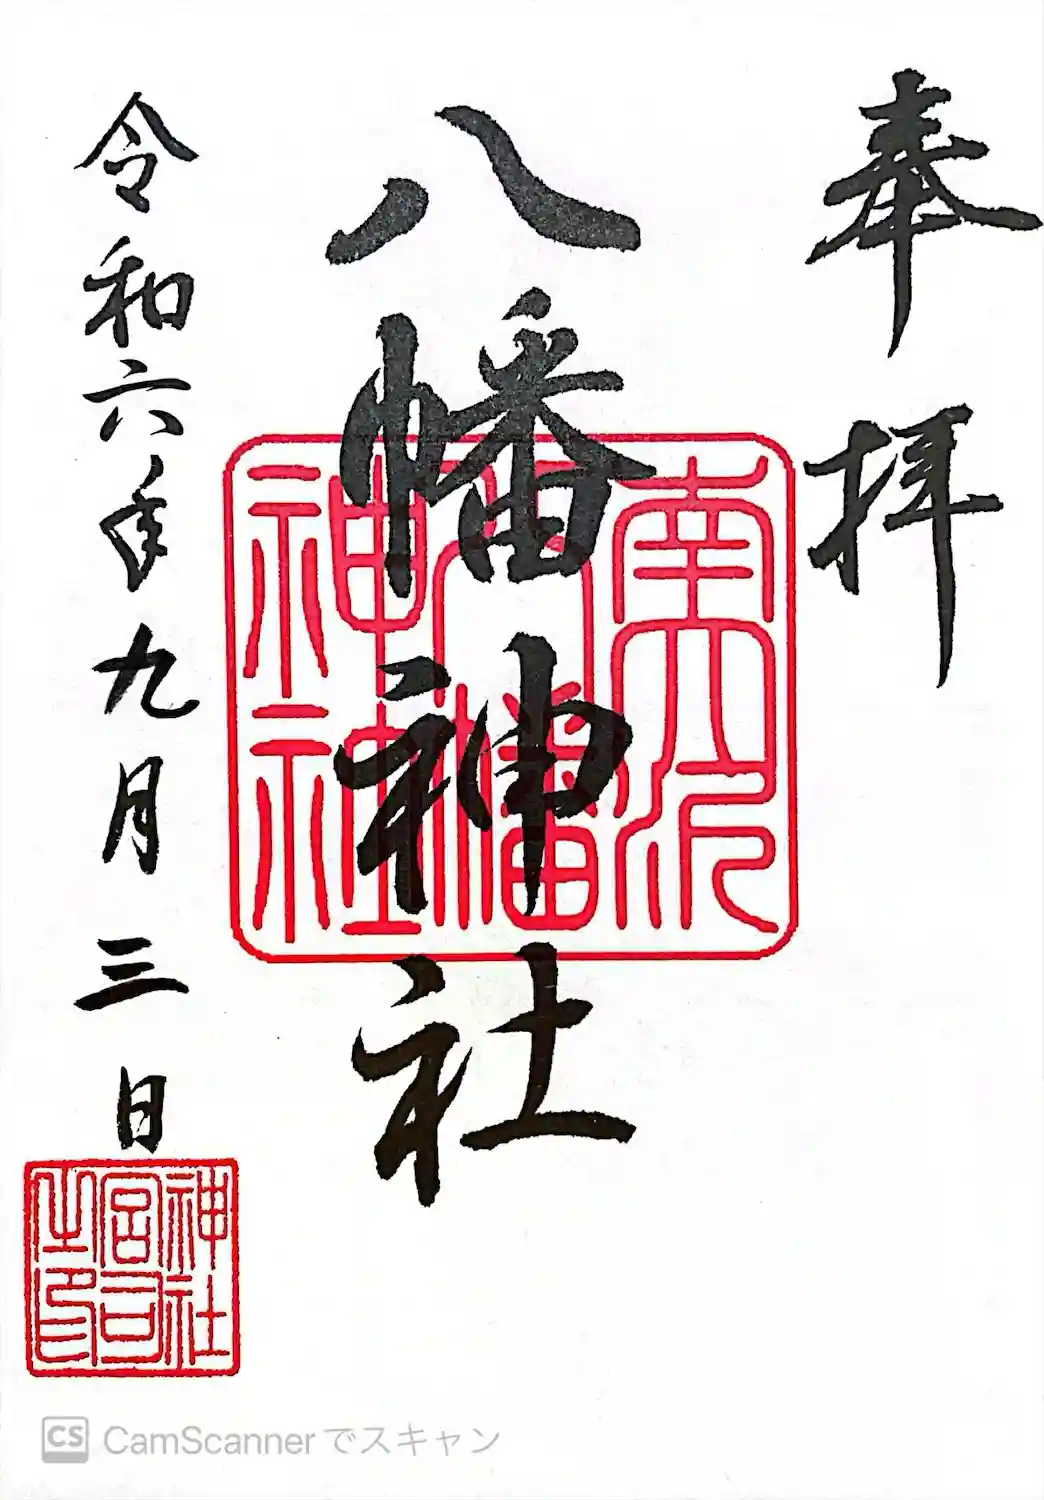 奉拝
八幡神社
令和六年九月三日
神社
宮司
之印
CS CamScannerでスキャン